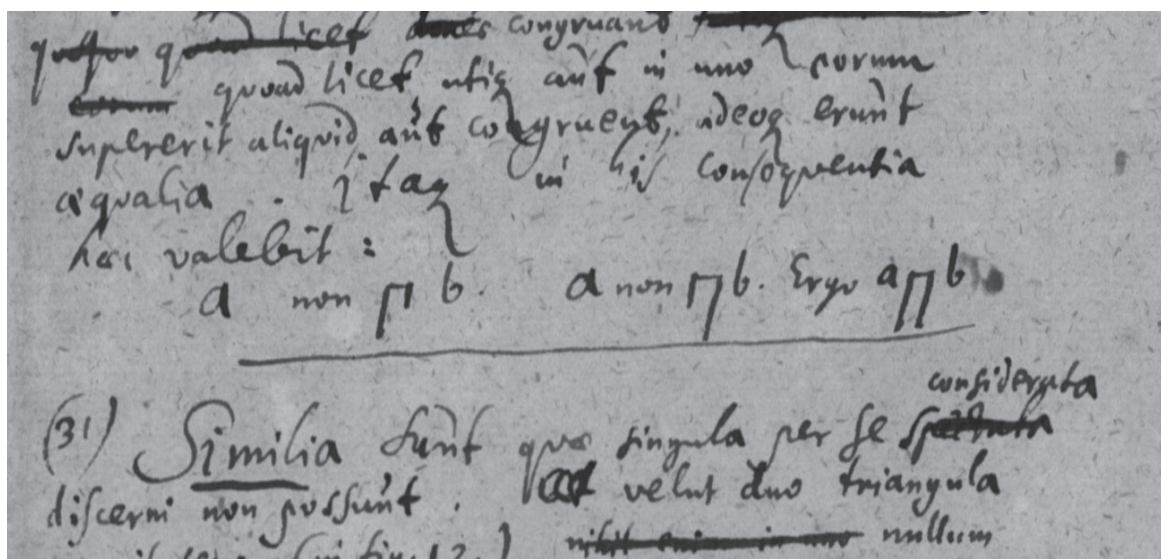 quod licet congruant
quoad licet utiq aut in uno eorum
supererit aliquid, aut congruent, adeoq erunt
æqualia. itaq in his consequentia
hæc valebit:
a non ⊓ b. a non ⊓ b. Ergo a ⊓ b
considerata
(31) Similia sunt quæ singula per se spectata
discerni non possunt. velut duo triangula
nihil enim in uno nullum